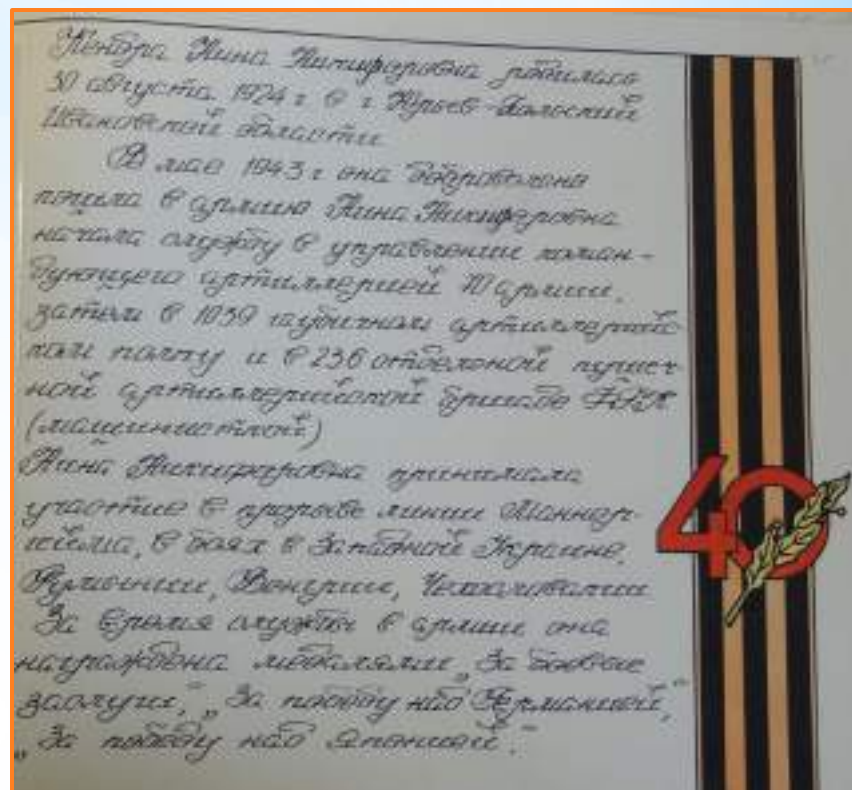 Нина Никифоровна родилась
30 августа 1924 г в г Юрьев-Польский
Ивановской области
В мае 1943 г она добровольно
пошла в армию Нина Никифоровна
начала службу в управлении коман-
дующего артиллерией 70 армии,
затем в 1039 гаубичном артиллерийс-
ком полку и в 236 отдельной пушеч-
ной артиллерийской бригаде
(машинисткой)
Нина Никифоровна принимала
участие в прорыве линии Маннер-
гейма, в боях в Западной Украине,
Румынии, Венгрии, Чехословакии
За время службы в армии она
награждена медалями „За боевые
заслуги,” „За победу над Германией,”
„За победу над Японией.”
40